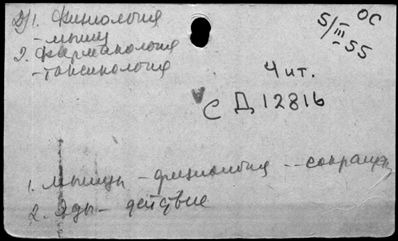 Д) 1. Физиология
- мышц
2. Фармакология
- токсикология
ОС
5/III-55
Чит.
С Д 12816
1. Мышцы - физиология -- сокращен
2. Яды - действие